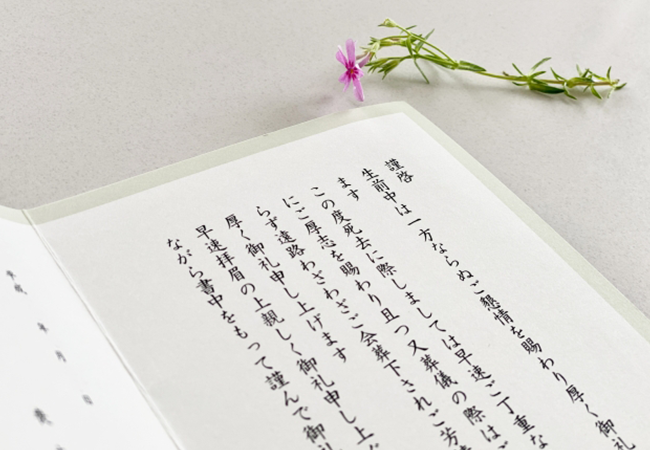 謹啓
生前中は一方ならぬご懇情を賜わり厚く御礼
ます
この度死去に際しましては早速ご丁重な
にご厚志を賜わり且つ又葬儀の際はご
らず遠路わざわざご会葬下されご芳
厚く御礼申し上げます
早速拝眉の上親しく御礼申し上
ながら書中をもって謹んで御礼
年月日